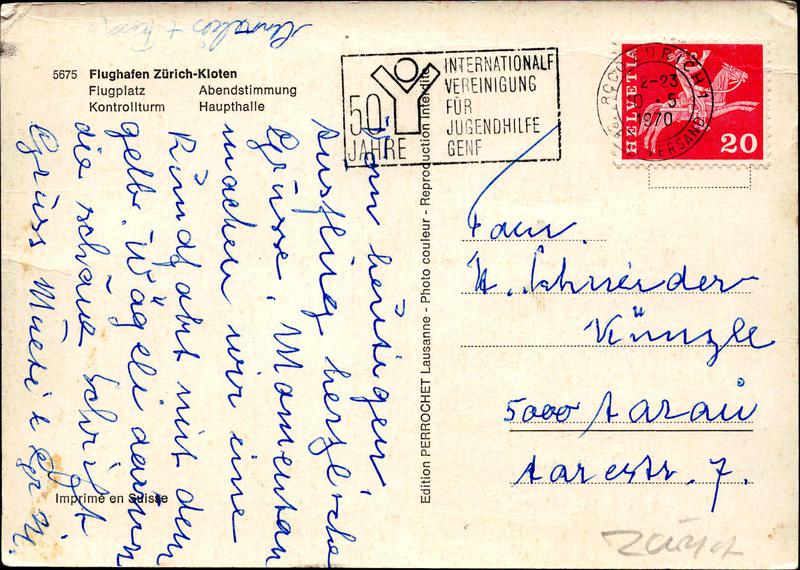 5675 Flughafen Zürich-Kloten
Flugplatz Abendstimmung
Kontrollturm Haupthalle
50
JAHRE
INTERNATIONALE
VEREINIGUNG
FÜR
JUGENDHILFE
GENF
ZÜRICH 1
12-23
10 5
1970
BRIEFVERSAND
HELVETIA
20
Vom heutigen
Ausflug herzliche
Grüsse. Momentan
machen wir eine
Rundfahrt mit dem
gelb. Wägeli darum
die schöne Schrift
Gruss Mueti &
Fam.
H. Schneider
Künzle
5000 Aarau
Aarestr. 7.
Edition PERROCHET Lausanne - Photo couleur - Reproduction interdite
Imprimé en Suisse
Zürich